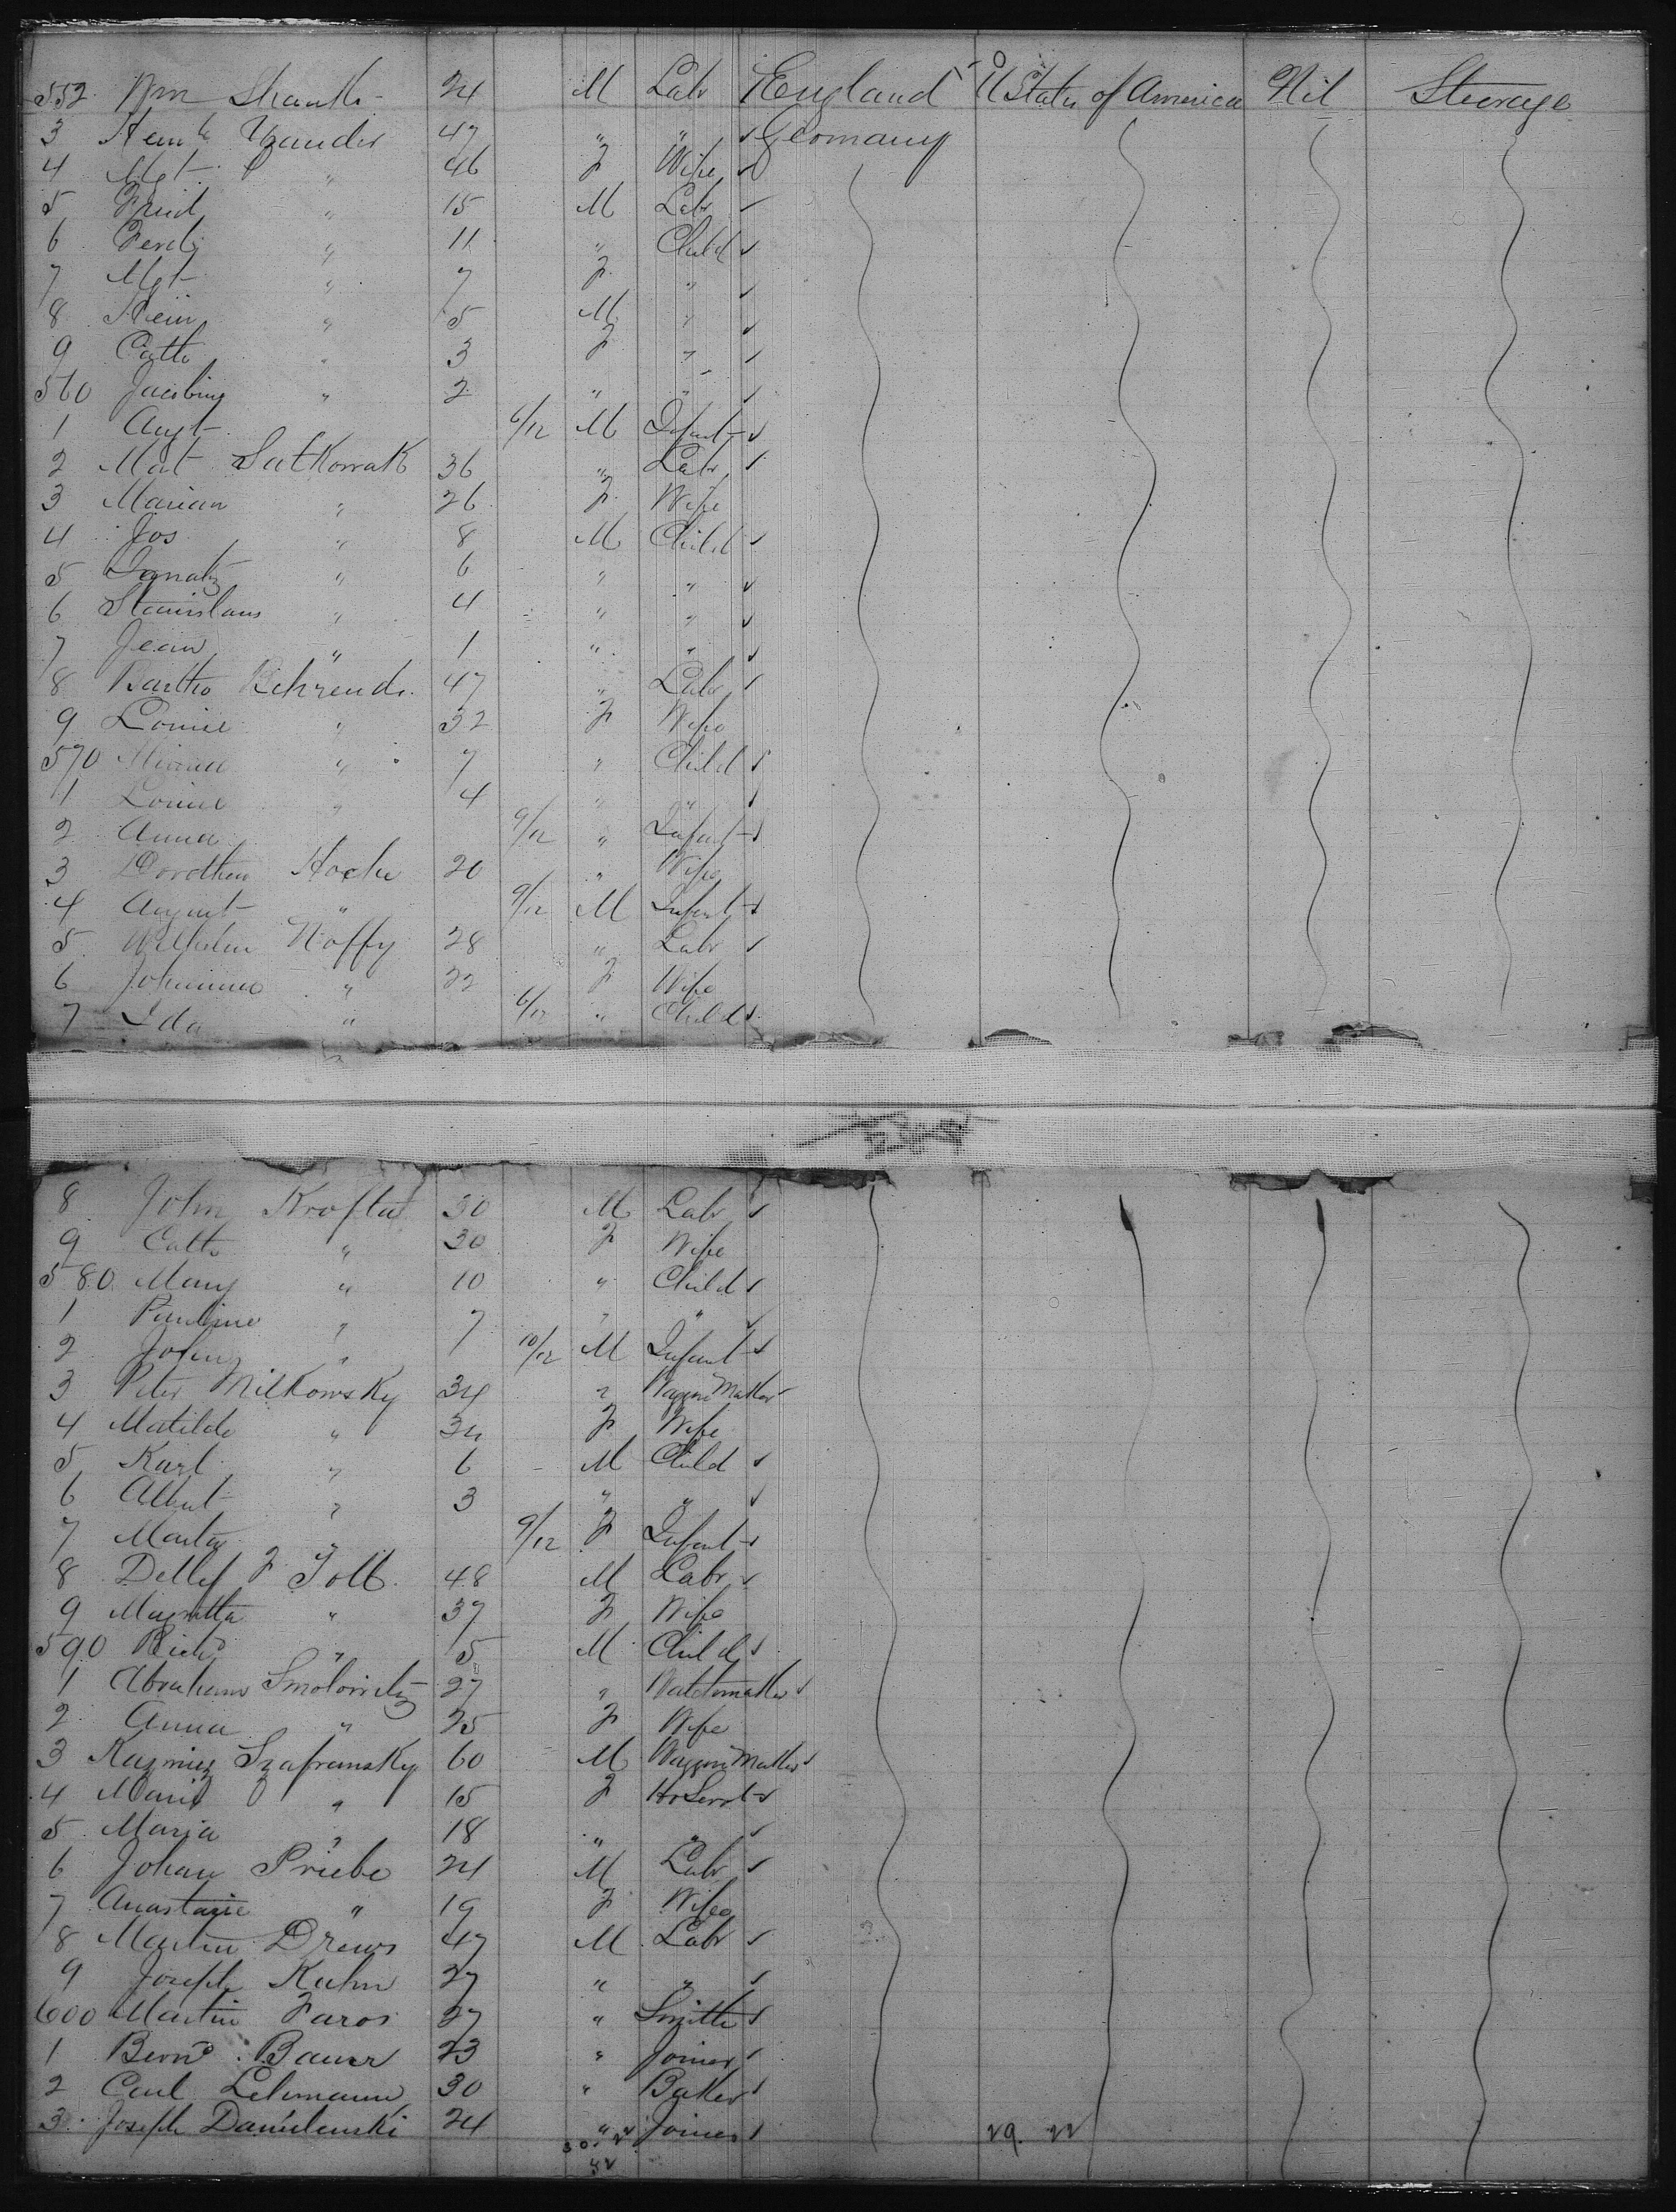 552 Wm Shanks 24 M Labr England U States of America Nil Steerage
3 47 " " Germany
4 Mgt " 46 F Wife
5 Fried " 15 M Labr
6 Ferdi " 11 " Child
7 Mgt " 7 F "
8 Hein " 5 M "
9 Cath " 3 F "
560 Jacobina " 2 " "
1 Augt 6/12 M Infant
2 Mat Satkowak 36 " Labr
3 Marian " 26 F Wife
4 Jos " 8 M Child
5 Ignatz " 6 " "
6 Stanislaus " 4 " "
7 Jean " 1 " "
8 Bartho Behrends 47 " Labr
9 Louise " 32 F Wife
570 " 7 " Child
1 Louise " 4 " "
2 Anna 9/12 " Infant
3 Dorothea 20 " Wife
4 August " 9/12 M Infant
5 Wilhelm Noffy 28 " Labr
6 Johanna " 22 F Wife
7 Ida " 6/12 " Child
8 John Krofta 30 M Labr
9 Cath " 30 F Wife
580 Mary " 10 " Child
1 Pauline " 7 " "
2 John " 10/12 M Infant
3 Peter Milkowsky 34 " Waggon Maker
4 Matilde " 34 F Wife
5 Karl " 6 M Child
6 Albert " 3 " "
7 Marta " 9/12 F Infant
8 Detlef F Toll 48 M Labr
9 Magretta " 37 F Wife
590 Richd " 5 M Child
1 Abraham Smolowitz 27 " Watchmaker
2 Anna " 25 F Wife
3 Kazmiez Szafransky 60 M Waggon Maker
4 Marie " 15 F Ho Servt
5 Maria " 18 " "
6 Johan Priebe 24 M Labr
7 Anastazie " 19 F Wife
8 Martin Drews 47 M Labr
9 Joseph Kuhn 27 " "
600 Martin Faros 27 " Smith
1 Bernd Bauer 23 " Joiner
2 Carl Lehmann 30 " Baker
3 Joseph Danielenski 24 " Joiner